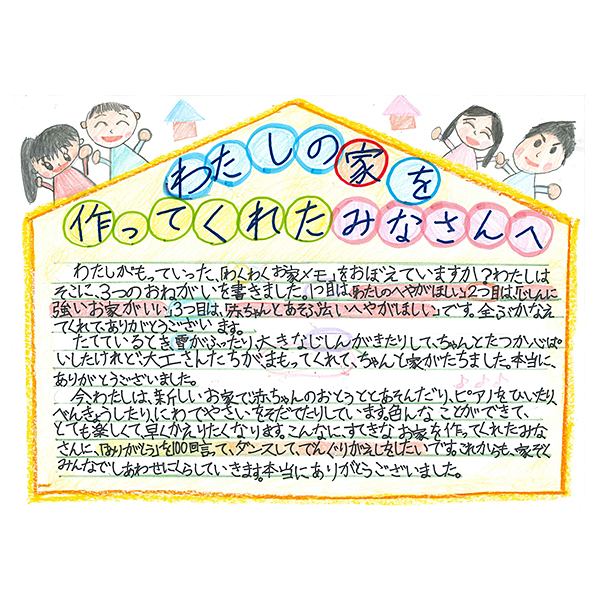 わたしの家を
作ってくれたみなさんへ
わたしがもっていった、「わくわくお家メモ」をおぼえていますか?わたしは
そこに、3つのおねがいを書きました。1つ目は、「わたしのへやがほしい」2つ目は、「じしんに
強いお家がいい」3つ目は、「赤ちゃんとあそぶ広いへやがほしい」です。全ぶかなえ
てくれてありがとうございます。
たてているとき、雪がふったり、大きなじしんがきたりして、ちゃんとたつか心ぱ
いしたけれど、大工さんたちがまもってくれて、ちゃんと家がたちました。本当に、
ありがとうございました。
今、わたしは、新しいお家で赤ちゃんのおとうととあそんだり、ピアノをひいたり、
べんきょうしたり、にわでやさいをそだてたりしています。色んなことができて、
とても楽しくて早くかえりたくなります。こんなにすてきなお家を作ってくれたみな
さんに、「ありがとう」を100回言って、ダンスして、でんぐりがえしをしたいです。これからも、家ぞく
みんなでしあわせにくらしていきます。本当にありがとうございました。